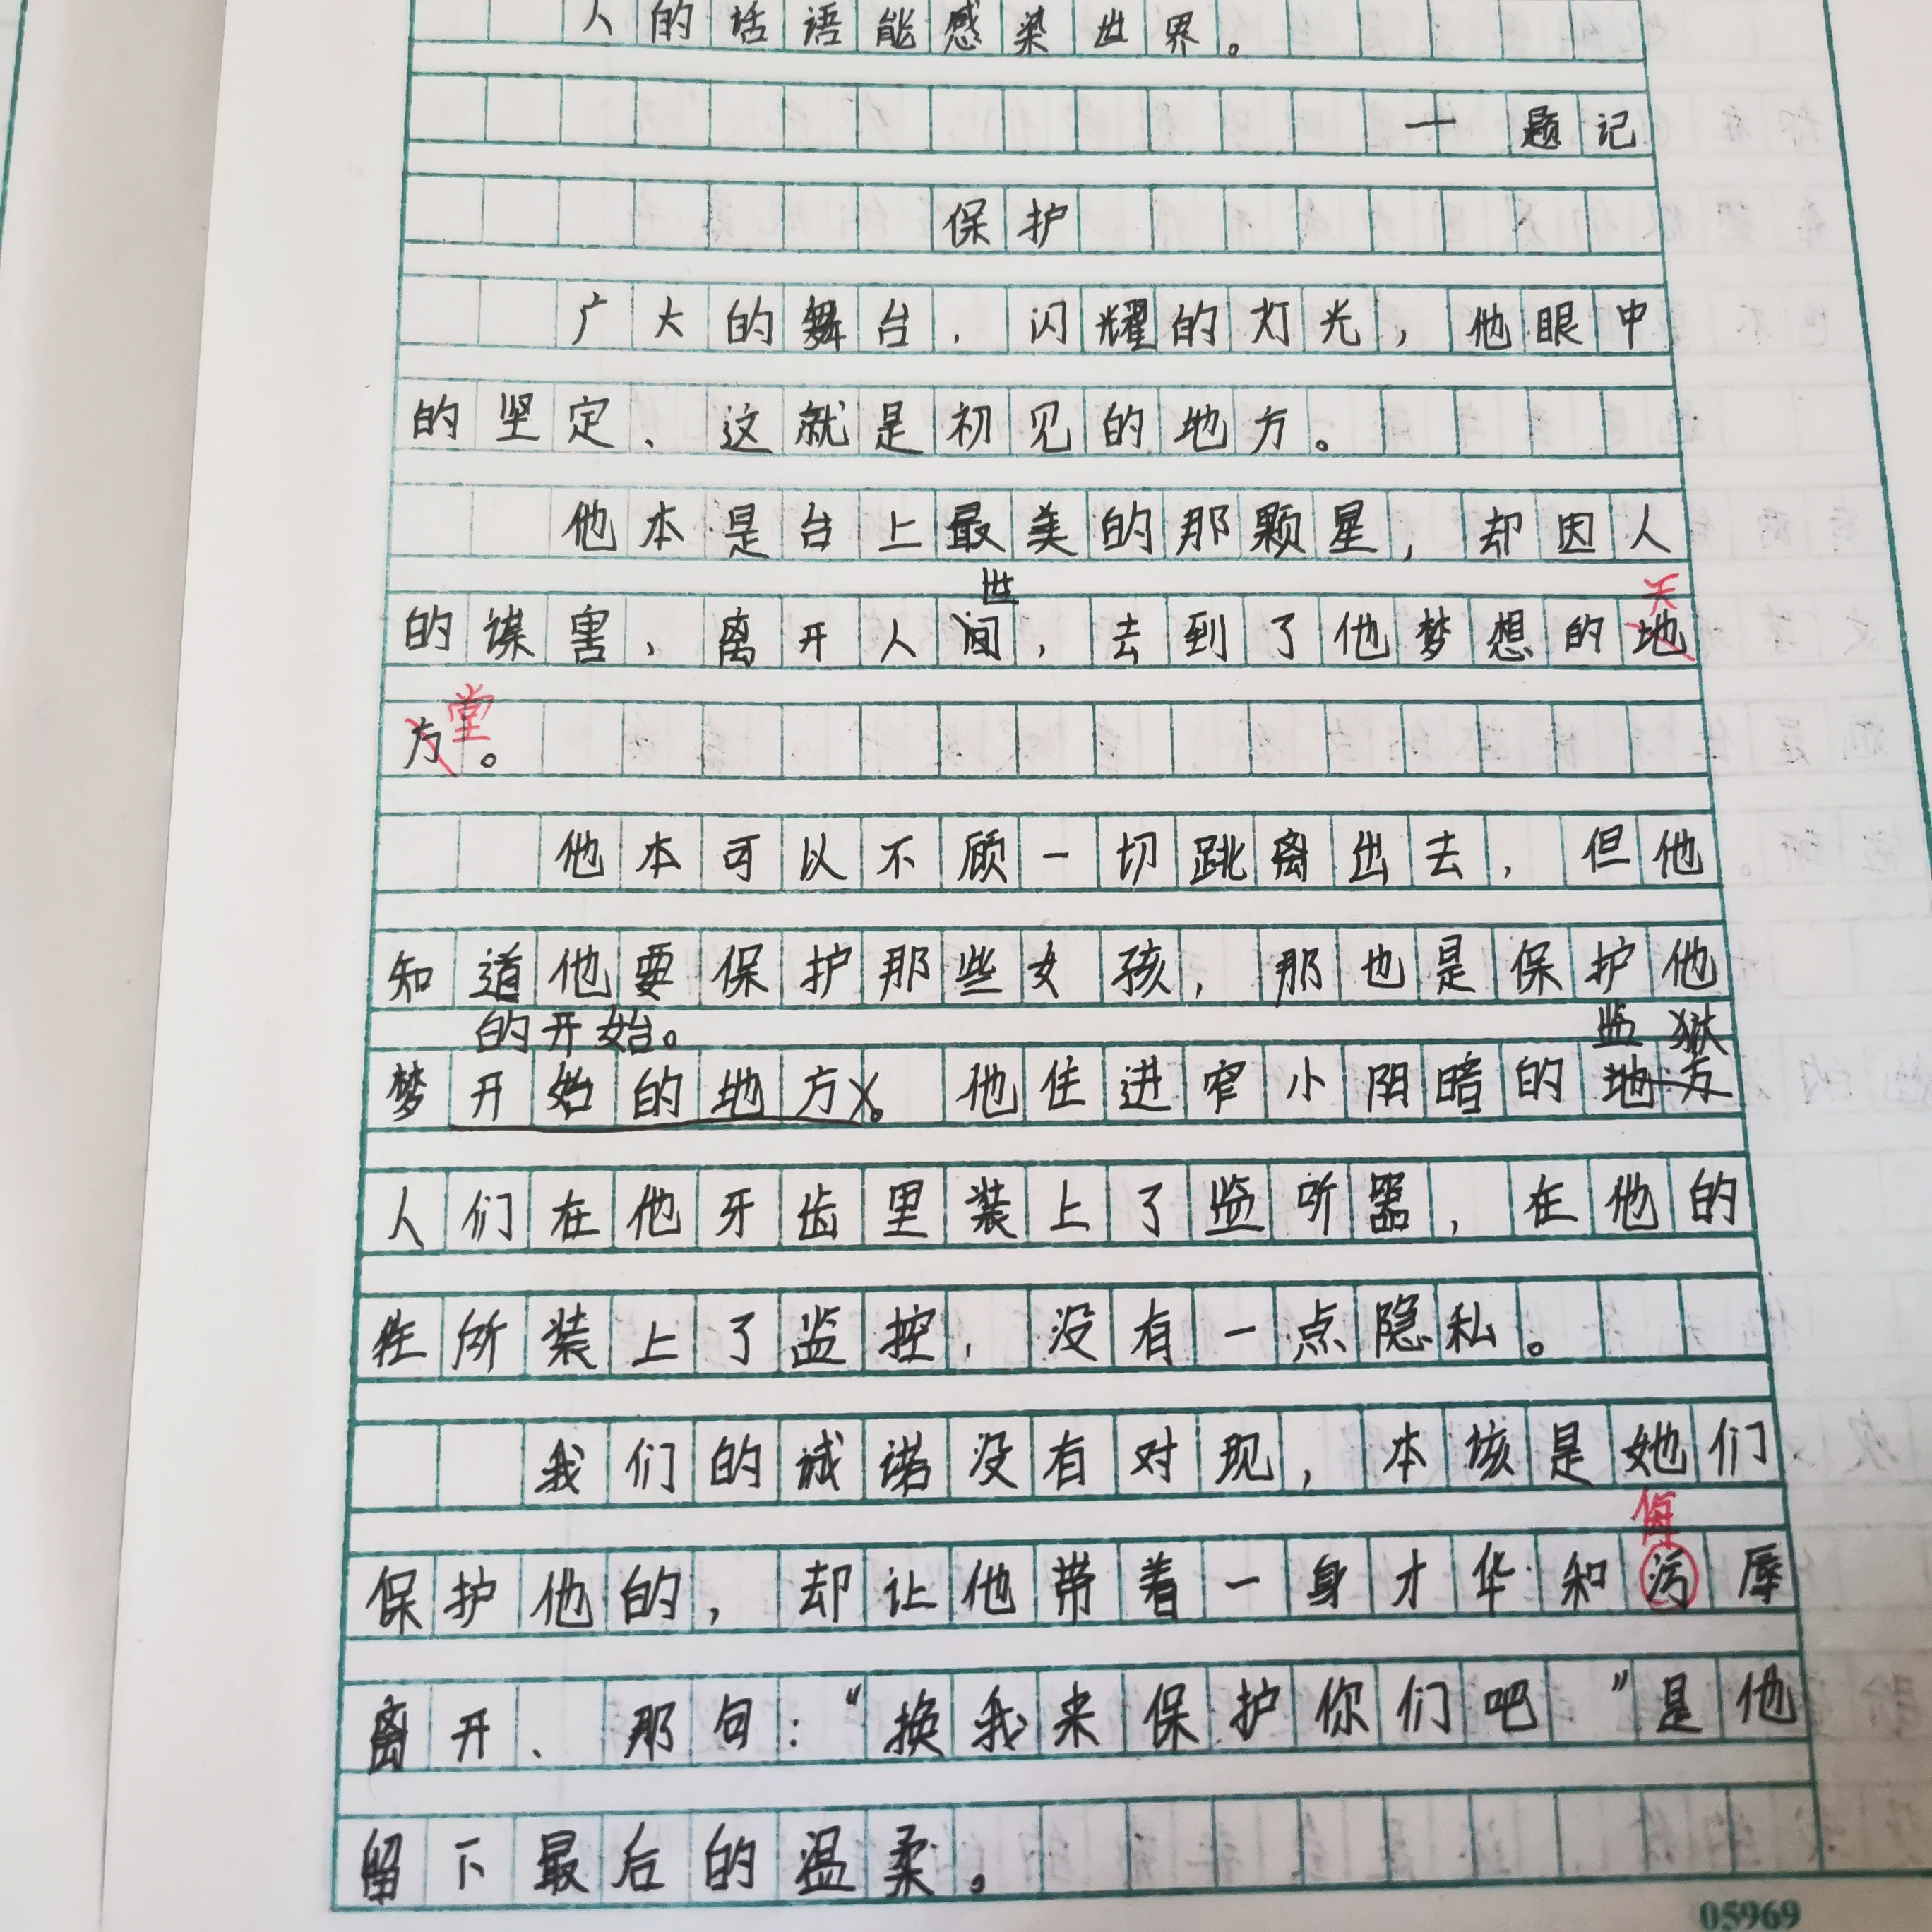 人的话语能感染世界。
一 题记
保护
广大的舞台，闪耀的灯光，他眼中
的坚定、这就是初见的地方。
他本是台上最美的那颗星，却因人
世
天
的谋害，离开人间，去到了他梦想的地
堂
方。
他本可以不顾一切跳离出去，但他
知道他要保护那些女孩，那也是保护他
的开始。 监狱
梦开始的地方。他住进窄小阴暗的地方
人们在他牙齿里装上了监听器，在他的
住所装上了监控，没有一点隐私。
我们的诚诺没有对现，本该是她们
侮
保护他的，却让他带着一身才华和污辱
离开、那句：“换我来保护你们吧”是他
留下最后的温柔。
05969